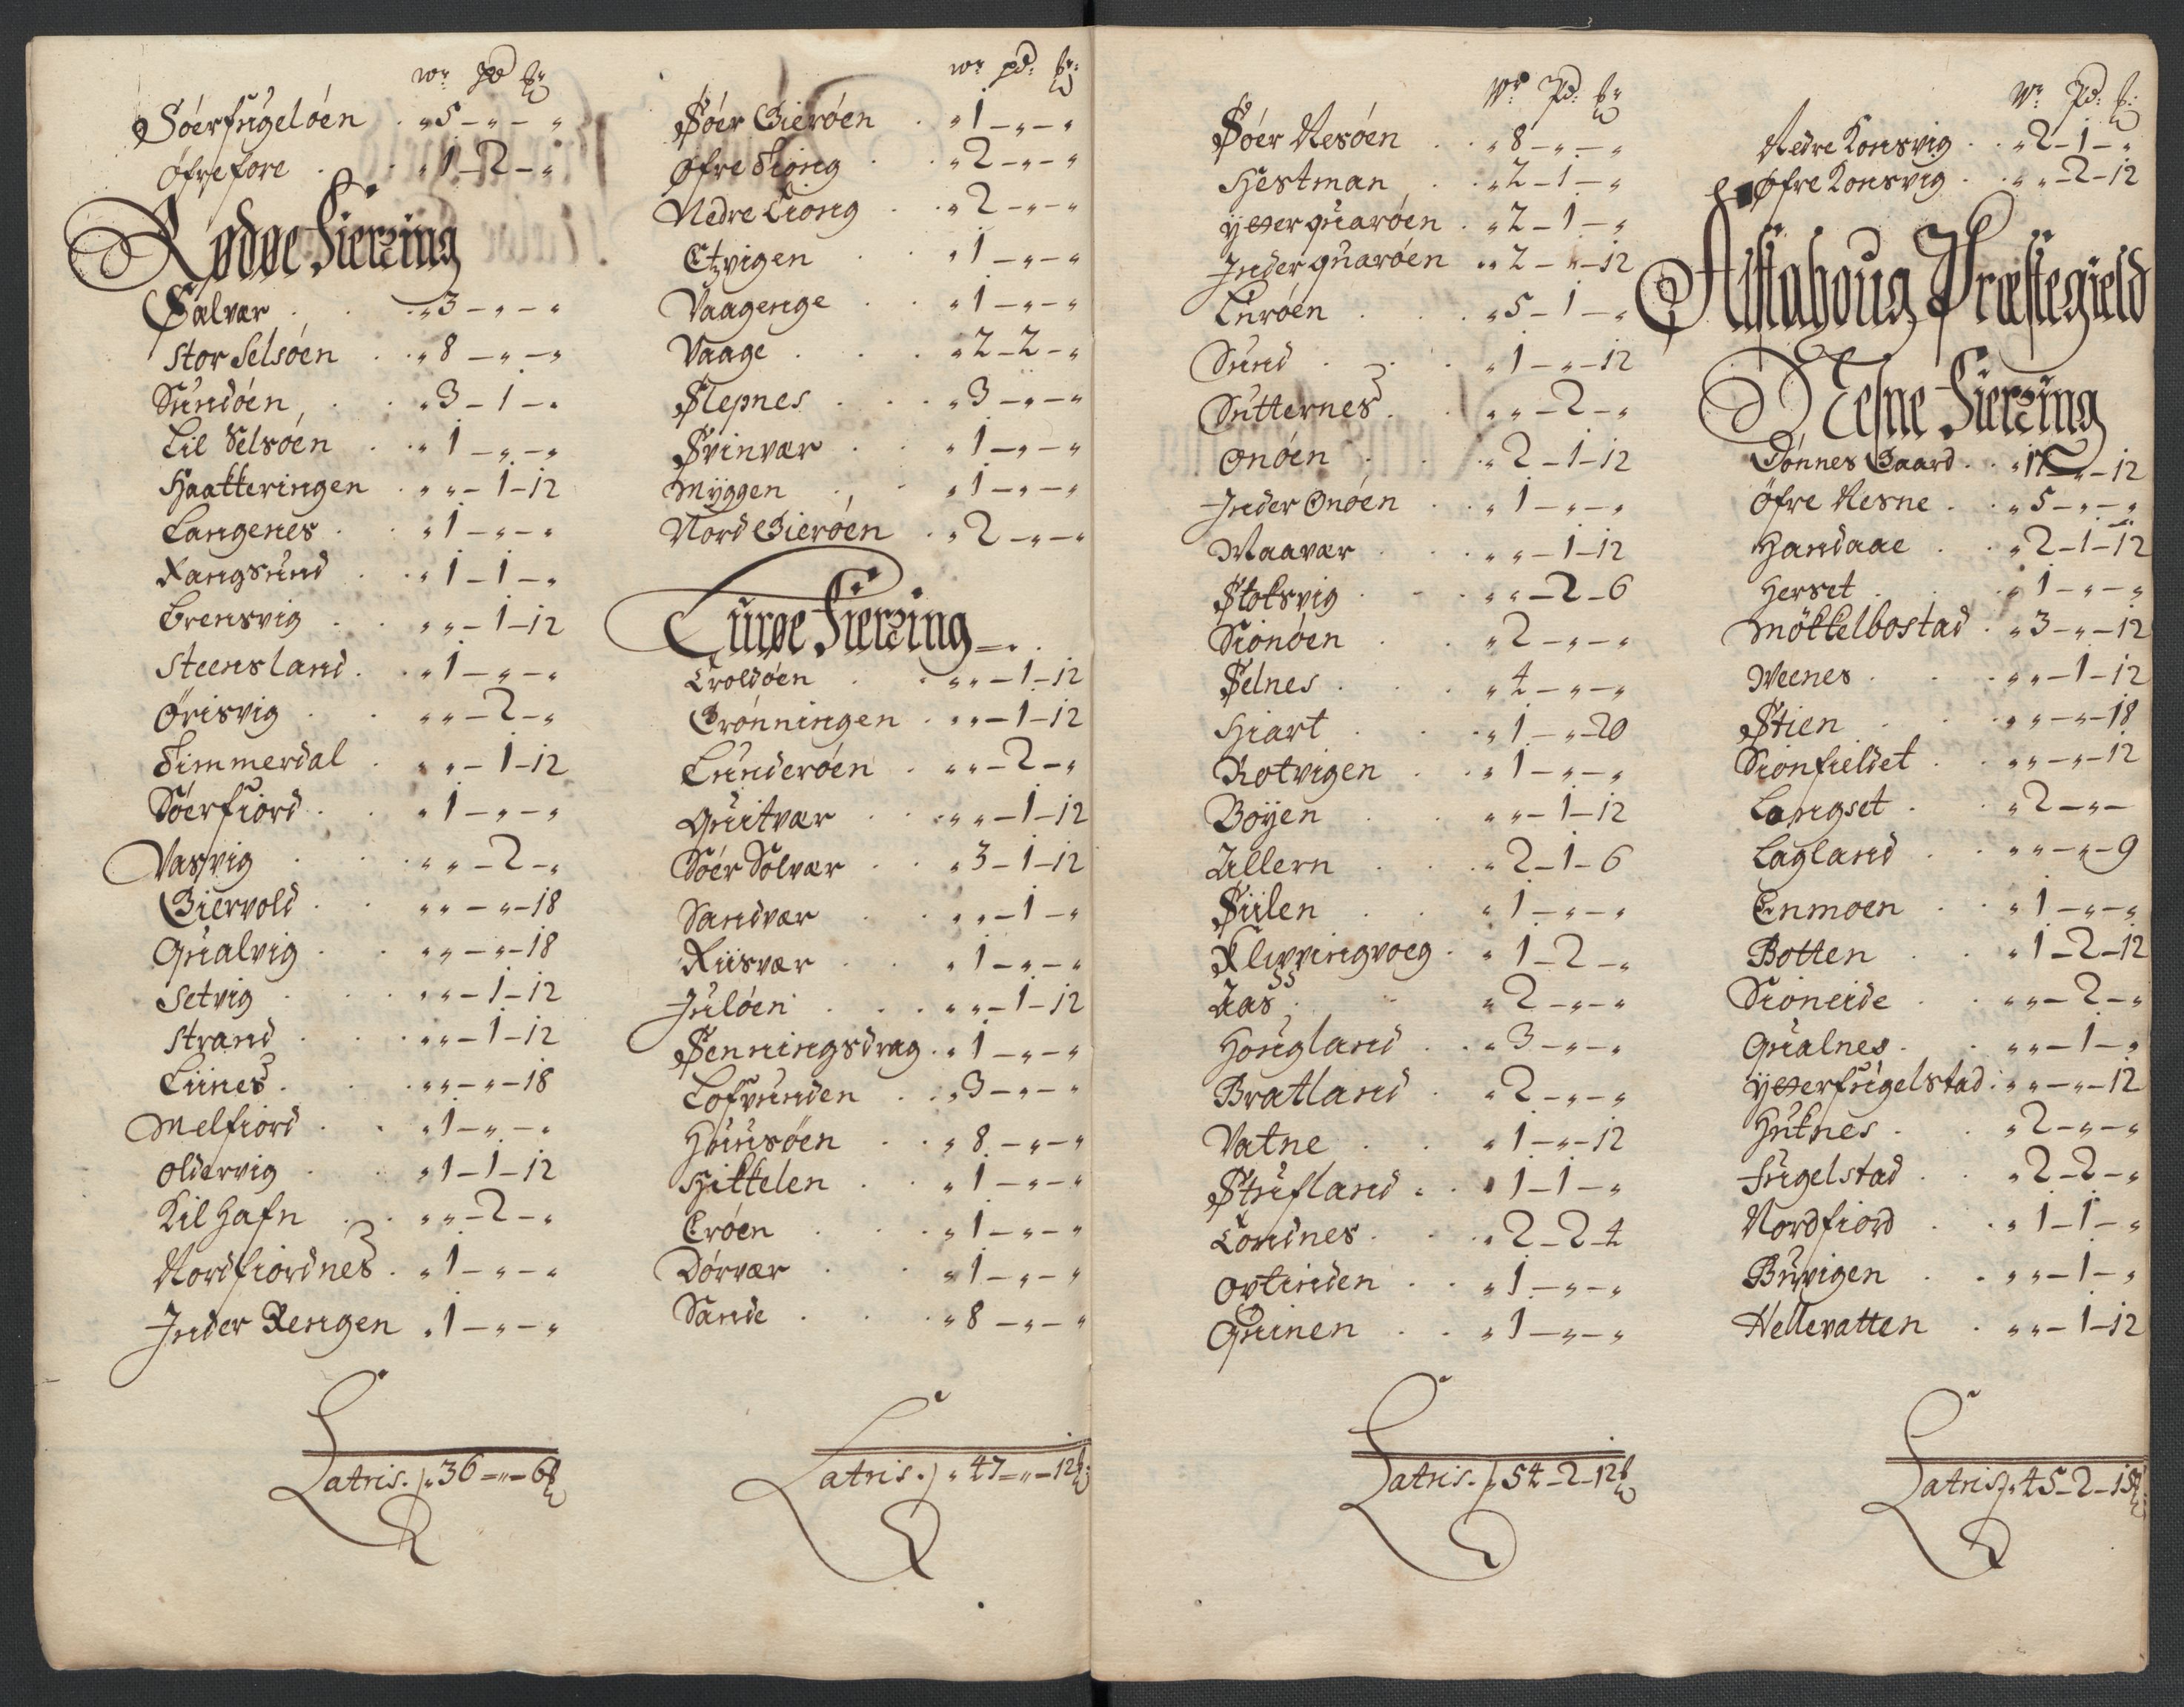 wr pd lb
Söerfugelöen „5 – „ – „
Øfre fore „1 – 2 – „
Rødøe Fierring
Sælvær „3 – „ – „
Stor Selsöen „8 – „ – „
Sundöen „3 – 1 – „
Lil Selsöen „1 – „ – „
Haatteringen „ „ – 1 – 12
Langenes „1 – „ – „
Rangsund „1 – 1 – „
Brensvig „ „ – 1 – 12
Steensland „1 – „ – „
Örisvig „ „ – 2 – „
Timmerdal „ „ – 1 – 12
Söerfiord „1 – „ – „
Vasvig „ „ – 2 – „
Giervold „ „ – „ – 18
Qualvig „ „ – „ – 18
Setvig „ „ – 1 – 12
Strand „ „ – 1 – 12
Liines „ „ – „ – 18
Melfiord „1 – „ – „
Oldervig „1 – 1 – 12
Kil Hafn „ „ – 2 – „
Nordfiordnes „1 – „ – „
Inder Rengen „1 – „ – „
Latris „36 – „ – 6 lb
wr pd: lb:
Söer Gieröen „1 – „ – „
Øfre Tiong „2 – „ – „
Nedre Tiong „2 – „ – „
Etzvigen „1 – „ – „
Vaagenge „1 – „ – „
Vaage „2 – 2 – „
Slepnes „3 – „ – „
Svinvær „1 – „ – „
Myggen „1 – „ – „
Nord Gieröen „2 – „ – „
Lurøe Fierring
Troldöen „ „ – 1 – 12
Grönningen „ „ – 1 – 12
Lunderöen „ „ – 2 – „
Quitvær „ „ – 1 – 12
Söer Solvær „3 – 1 – 12
Sandvær „ „ – 1 – „
Riisvær „1 – „ – „
Julöen „ „ – 1 – 12
Senningsdrag „1 – „ – „
Lofvunden „3 – „ – „
Huusöen „8 – „ – „
Hittelen „1 – „ – „
Eröen „1 – „ – „
Dörvær „1 – „ – „
Sande „8 – „ – „
Latris „47 – „ – 12 lb
Wr Pd: lb
Söer Nesöen „8 – „ – „
Hestman „2 – 1 – „
Ytter quaröen „2 – 1 – „
Inder quaröen „2 – „ – 12
Luröen „5 – 1 – „
Sund „1 – „ – 12
Sutternes „ „ – 2 – „
Onöen „2 – 1 – 12
Inder Onöen „1 – „ – „
Maavær „ „ – 1 – 12
Stoksvig „ „ – 2 – 6
Sionöen „2 – „ – „
Selnes „4 – „ – „
Hiart „1 – „ – 20
Rotvigen „1 – „ – „
Böyen „ „ – 1 – 12
Ullern „2 – 1 – 6
Siilen „1 – „ – „
Klivvingvoeg „1 – 2 – „
Aas „2 – „ – „
Hougland „3 – „ – „
Bratland „2 – „ – „
Vatne „1 – „ – 12
Stufland „1 – 1 – „
Tondnes „2 – 2 – 4
Ovtinden „1 – „ – „
Quinen „1 – „ – „
Latris „54 – 2 – 12 lb
Wr Pd: lb:
Nedre Konsvig „2 – 1 – „
Øfre Konsvig „ „ – 2 – 12
Alstahoug Præstegield
Nesne Fierring
Dönnes Gaard „17 – „ – 12
Öfre Nesne „5 – „ – „
Handaae „2 – 1 – 12
Herset „1 – „ – „
Möktelbostad „3 – „ – 12
Weenes „ „ – 1 – 12
Stien „ „ – „ – 18
Sionfieldet „ „ – „ – 12
Langset „2 – „ –
Lagland „ „ – „ – 9
Enmoen „1 – „ – „
Botten „1 – 2 – 12
Sioneide „ „ – 2 – „
Qualnes „ „ – 1 – „
Ytterfugelstad „ „ – „ – 12
Huknes „2 – „ – „
Fugelstad „2 – 2 – „
Nordfiord „1 – 1 – „
Buvigen „ „ – 1 – „
Hellevatten „ „ – 1 – 12
Latris „45 – 2 – 15 lb